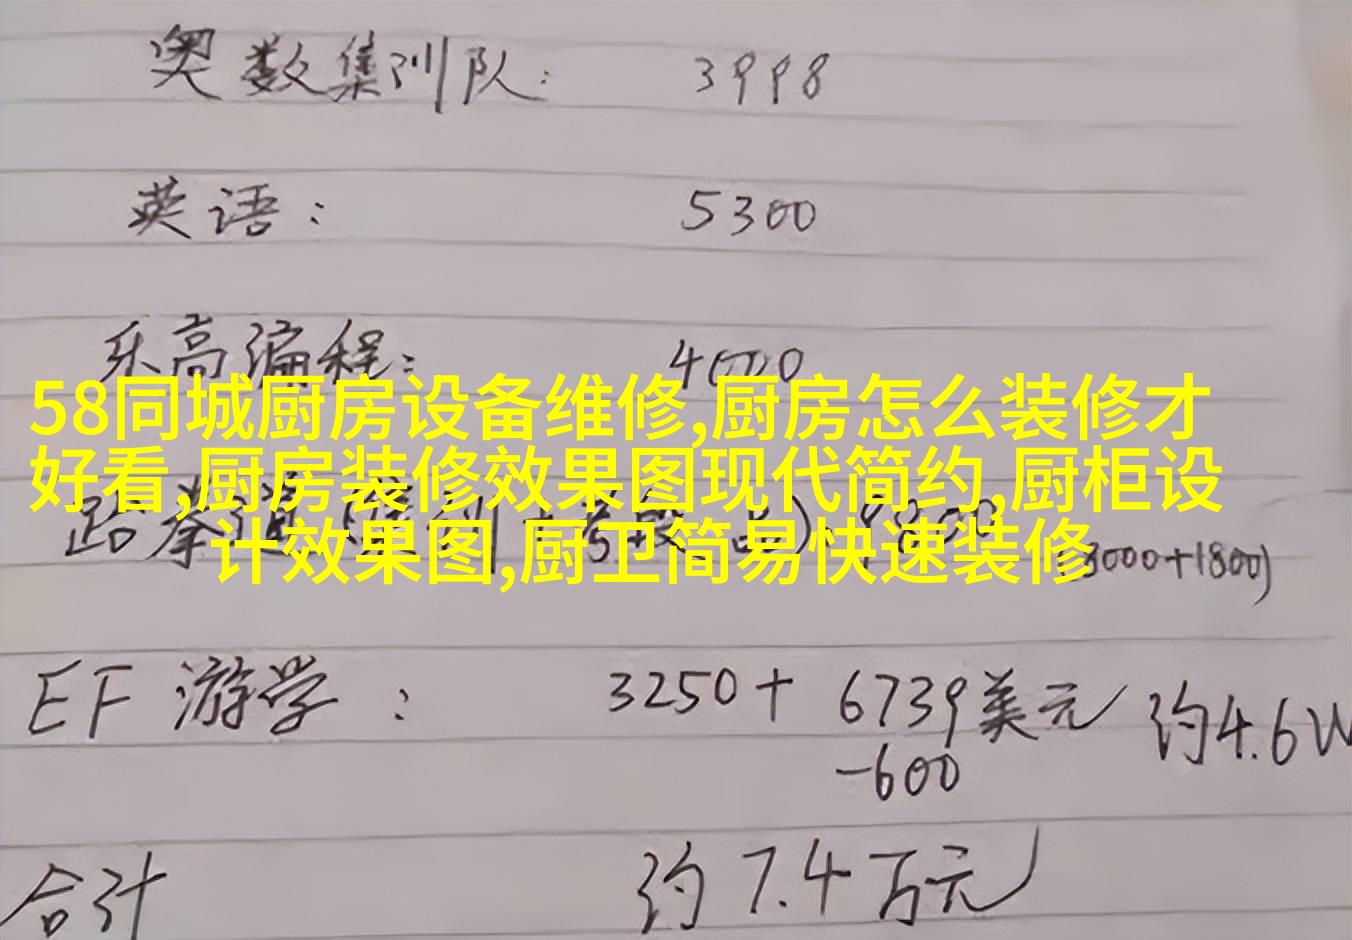 奥数集训队: 3998
英语: 5300
乐高编程: 4000
58同城厨房设备维修,厨房怎么装修才
好看,厨房装修效果图现代简约,厨柜设
计效果图,厨卫简易快速装修
跆拳道
3000+1800)
EF 游学: 3250+ 6739美元 约4.6W
-600
合计 约7.4万元